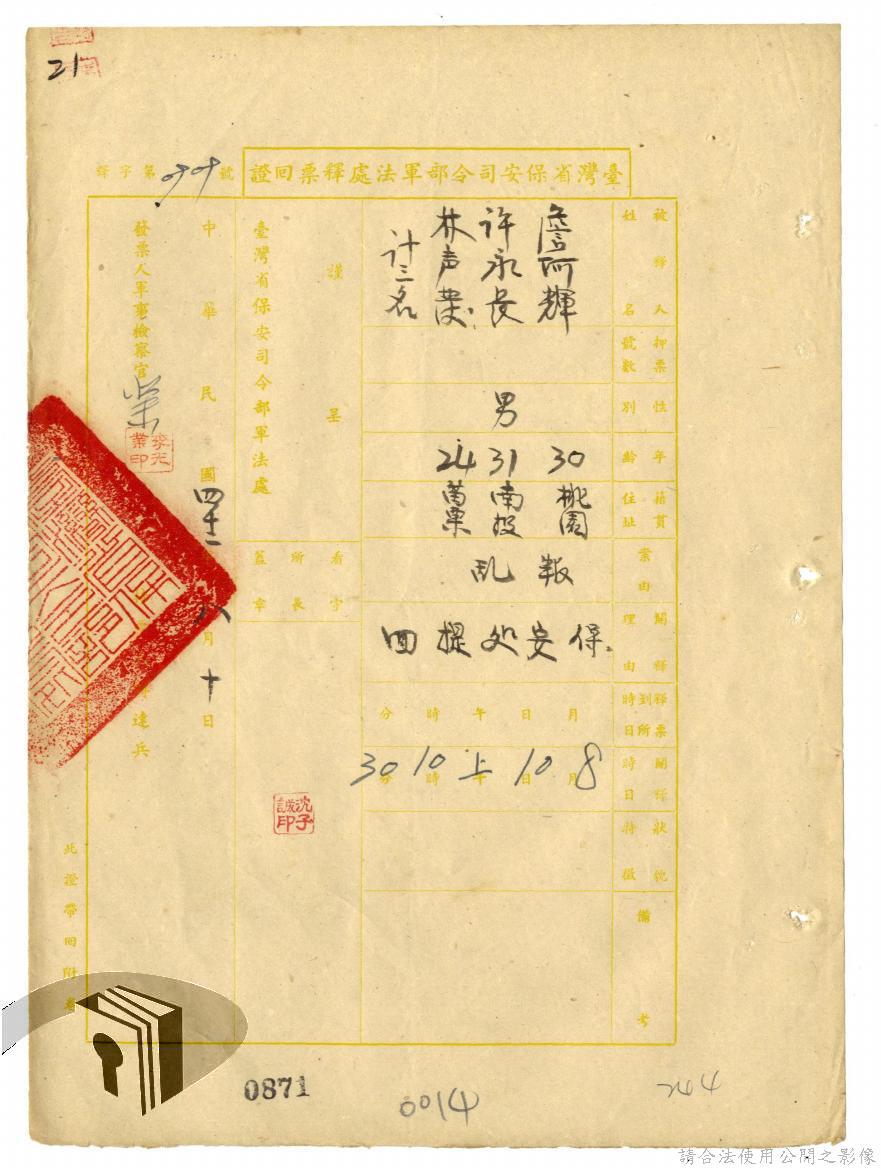 21
臺灣省保安司令部軍法處釋票回證
釋字第
號
被釋人
姓名
詹阿輝
許永長
林声
計三名
押票
號數
性別
男
年齡
30
31
24
籍貫
住址
桃園
南投
苗栗
案由
叛乱
開釋
理由
保安处提回
釋票
到所
時日
月日午時分
開釋
時日
8月10日上午10時30分
狀貌
特徵
備考
謹呈
臺灣省保安司令部軍法處
看守
所長
蓋章
沈子誠印
中華民國四十一八月十日
發票人軍事檢察官
李光業印
達兵
此證帶回附卷
0871
0014
244
請合法使用公開之影像